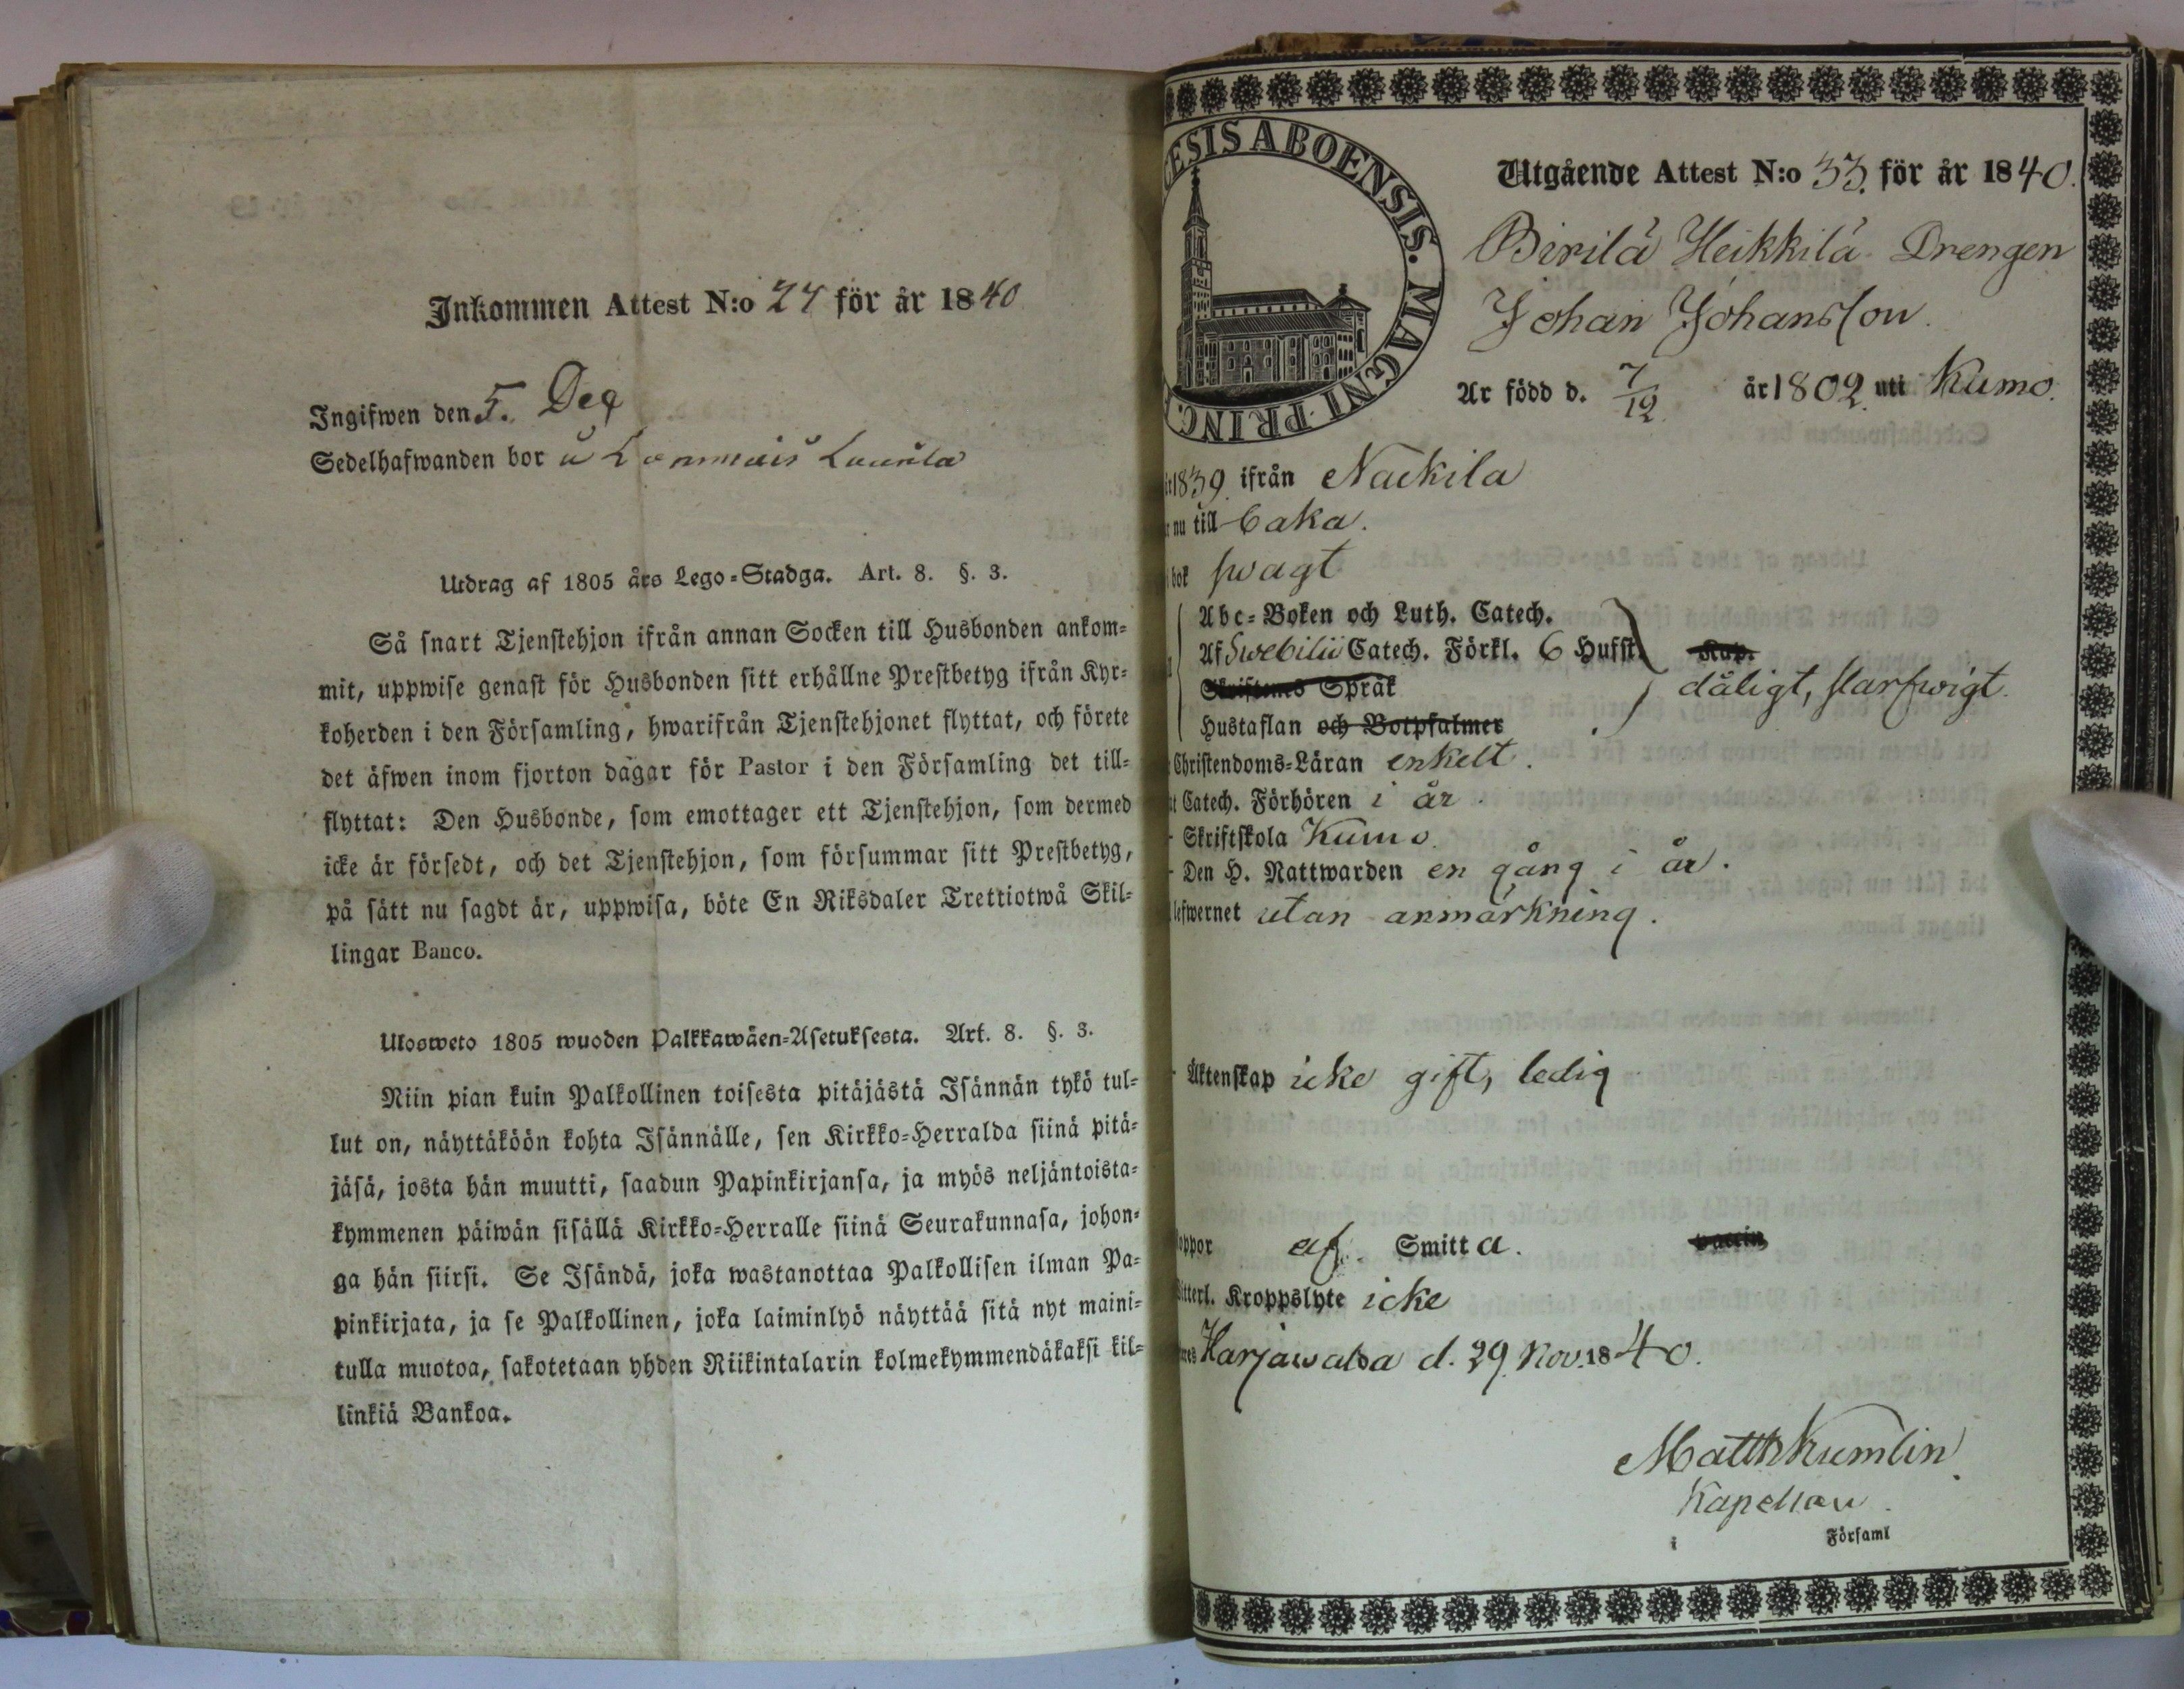 Inkommen Attest N:o 24 för år 1840
Ingifwen den 5. Dec
Sedelhafwanden bor
Utdrag af 1805 års Lego-Stadga. Art. 8. §. 3.
Så snart Tjenstehjon ifrån annan Socken till Husbonden ankom-
mit, uppwise genast för Husbonden sitt erhållne Prestbetyg ifrån Kyr-
koherden i den Församling, hwarifrån Tjenstehjonet flyttat, och förete
det äfwen inom fjorton dagar för Pastor i den Församling det till-
flyttat: Den Husbonde, som emottager ett Tjenstehjon, som dermed
icke är försedt, och det Tjenstehjon, som försummar sitt Prestbetyg,
på sätt nu sagdt är, uppwisa, böte En Riksdaler Trettiotwå Skil-
lingar Banco.
Ulosweto 1805 wuoden Palkkawäen-Asetuksesta. Art. 8. §. 3.
Niin pian kuin Palkollinen toisesta pitäjästä Isännän tykö tul-
lut on, näyttäköön kohta Isännälle, sen Kirkko-Herralda siinä pitä-
jäsä, josta hän muutti, saadun Papinkirjansa, ja myös neljäntoista-
kymmenen päiwän sisällä Kirkko-Herralle siinä Seurakunnasa, johon-
ga hän siirsi. Se Isändä, joka wastanottaa Palkollisen ilman Pa-
pinkirjata, ja se Palkollinen, joka laiminlyö näyttää sitä nyt maini-
tulla muotoa, sakotetaan yhden Riikintalarin kolmekymmendäkaksi kil-
linkiä Bankoa.
ESIS ABOENSIS. MAGNI PRINC
Utgående Attest N:o 33. för år 1840.
Birilä Heikkilä Drengen
Johan Johansson.
Är född d. 7/12 år 1802 uti Kumo.
1839 ifrån Nackila
nu till baka.
bok swagt
Abc-Boken och Luth. Catech.
Af Swebilii Catech. Förkl. 6 Hufst. Kap.
Skriftenes Språk dåligt, slarfwigt.
Hustaflan och Botpsalmer
Christendoms-Läran enkelt.
Catech. Förhören i år.
Skriftskola Kumo.
Den H. Nattwarden en gång i år.
lefwernet utan anmärkning.
Äktenskap icke gift, ledig
oppor af Smitta. vaccin
itterl. Kroppslyte icke
Harjawalda d. 29 Nov. 1840.
Matth Kumlin
Kapellan.
i Församl